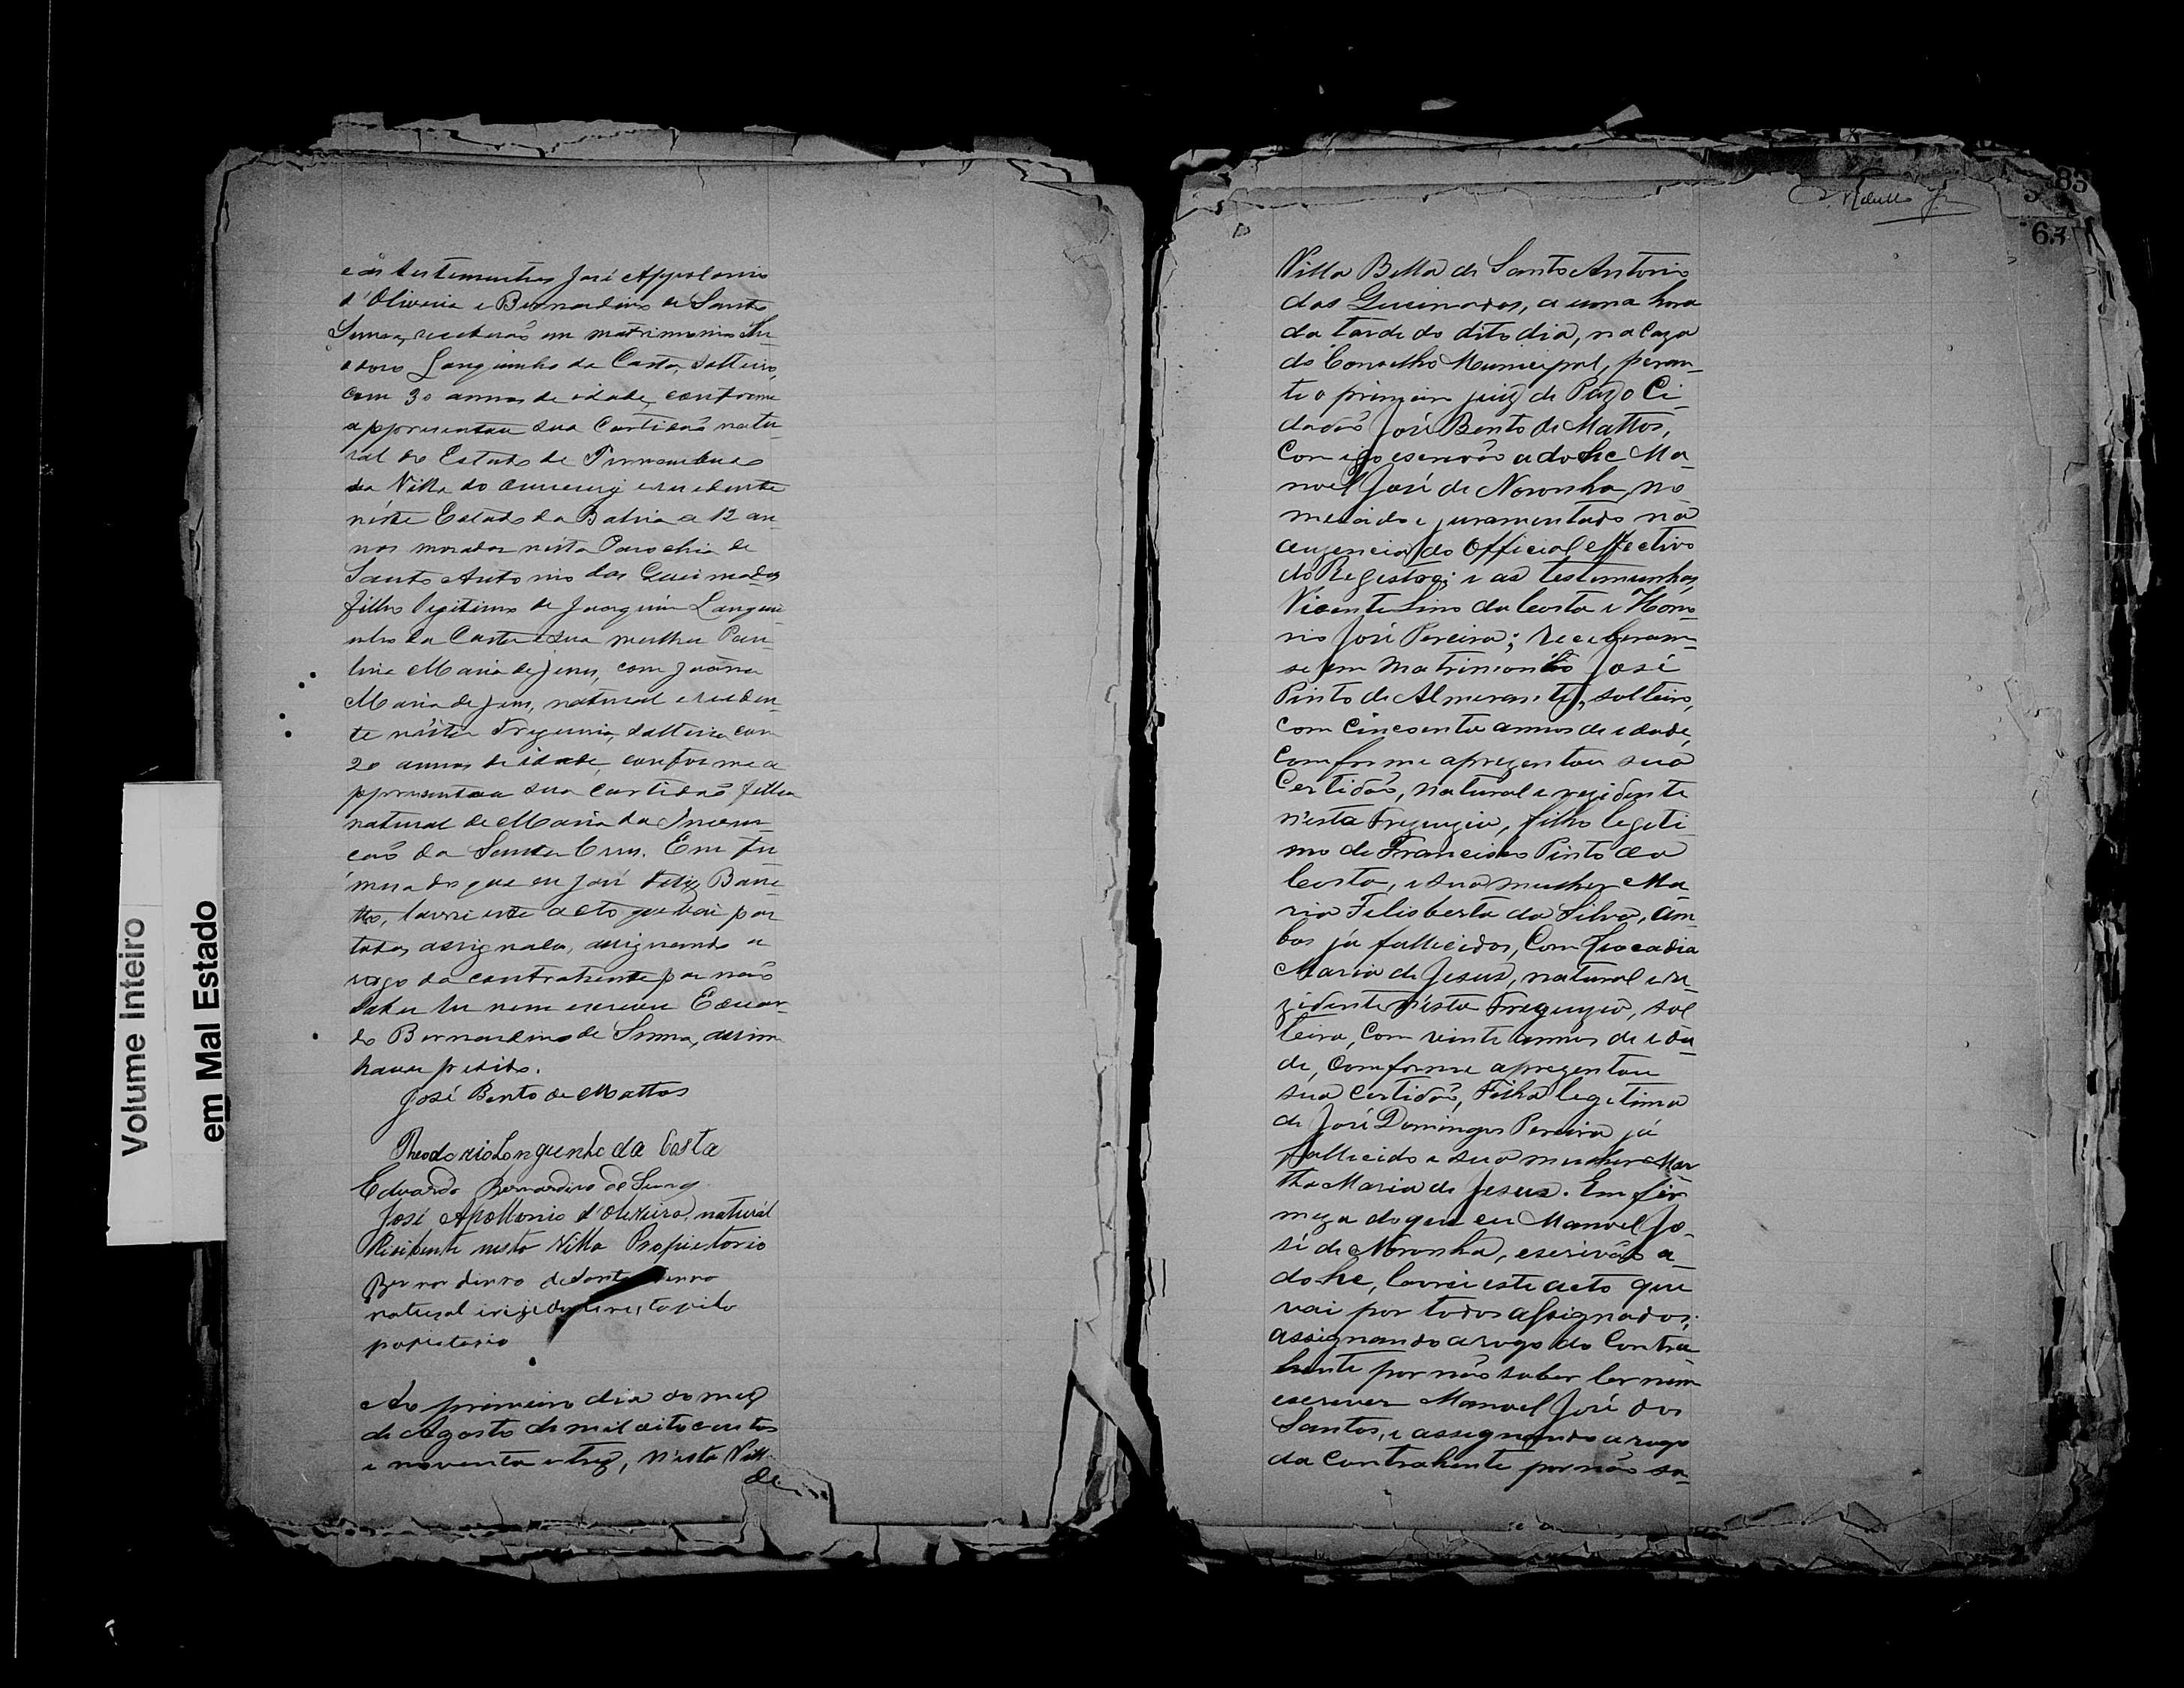 e as testemunhas José Appolonio
d'Oliveira e Bernardino de Santa
Senna, receberão em matrimonio The
odoro Longuinho da Costa, solteiro,
com 30 annos de idade, conforme
appresentou sua Certidão natu
ral do Estado de Pernambuco
da Villa do e residente
néste Estado da Bahia a 12 an
nos morador nésta Parochia de
Santo Antonio das Queimadas
filho legitimo de Joaquim Longui
nho da Costa e sua mulher Pau
lina Maria de Jesus, com Joanna
Maria de Jesus, natural e residen
te nésta Freguesia, solteira com
20 annos de idade, conforme a
ppresentou sua certidão filha
natural de Maria da Incarna
ção da Santa Cruz. Em fir
mesa do que eu José Felix Barre
tto, lavrei este acto que vai por
todos assignado, assignando a
rogo da contrahente por não
saber ler nem escrever Eduar
do Bernardino de Senna, assim
haver pedido.
José Bento de Mattos
Theodorio Longuinho da Costa
Eduardo Bernardino de Senna
José Apollonio d'Oliveira, naturál
Residente nesta Villa Propietario
Bernardinno de Santa Senna
natural e rezidente nesta vila
popietario
Ao primeiro dia do mez
de Agosto de mil oitocentos
e noventa e trez, n'esta Vill
de
Volume Inteiro
em Mal Estado
83
63
Villa Bella de Santo Antonio
das Queimadas, a uma hora
da tarde do dito dia, na Caza
do Conselho Municipal, peran-
te o primeiro juiz de Pazo Ci-
dadão José Bento de Mattos,
Com igo escrivão adohc Ma-
noel José de Noronha, no-
meado e juramentado na
auzencia do Official effectivo
do Registro; e as testemunhas,
Vicente Lino da Costa e Hono
rio José Pereira; receberam-
se em Matrimonio José
Pinto de Almerante, solteiro,
com cincoenta annos de idade,
comforme aprezentou sua
Certidão, natural e rezidente
n'esta Freguezia, filho legeti-
mo de Francisco Pinto da
Costa, e sua mulher Ma
ria Felisberta da Silva, am
bos já fallicidos, Com Leocadia
Maria de Jesus, natural e re-
zidente n'esta Freguezia, sol
teira, Com vinte annos de ida-
de, comforme aprezentou
sua certidão, Filha legetima
de José Domingos Pereira já
fallicido e sua mulher Mar
tha Maria de Jesus. Em fir
meza do que eu Manoel Jo-
sé de Noronha, escrivão a-
dohc, lavrei este acto que
vai por todos assignados;
assignando arogo do Contra-
hente por não saber ler nem
escrever Manoel José dos
Santos, e assegnando a rogo
da Contrahente por não sa-